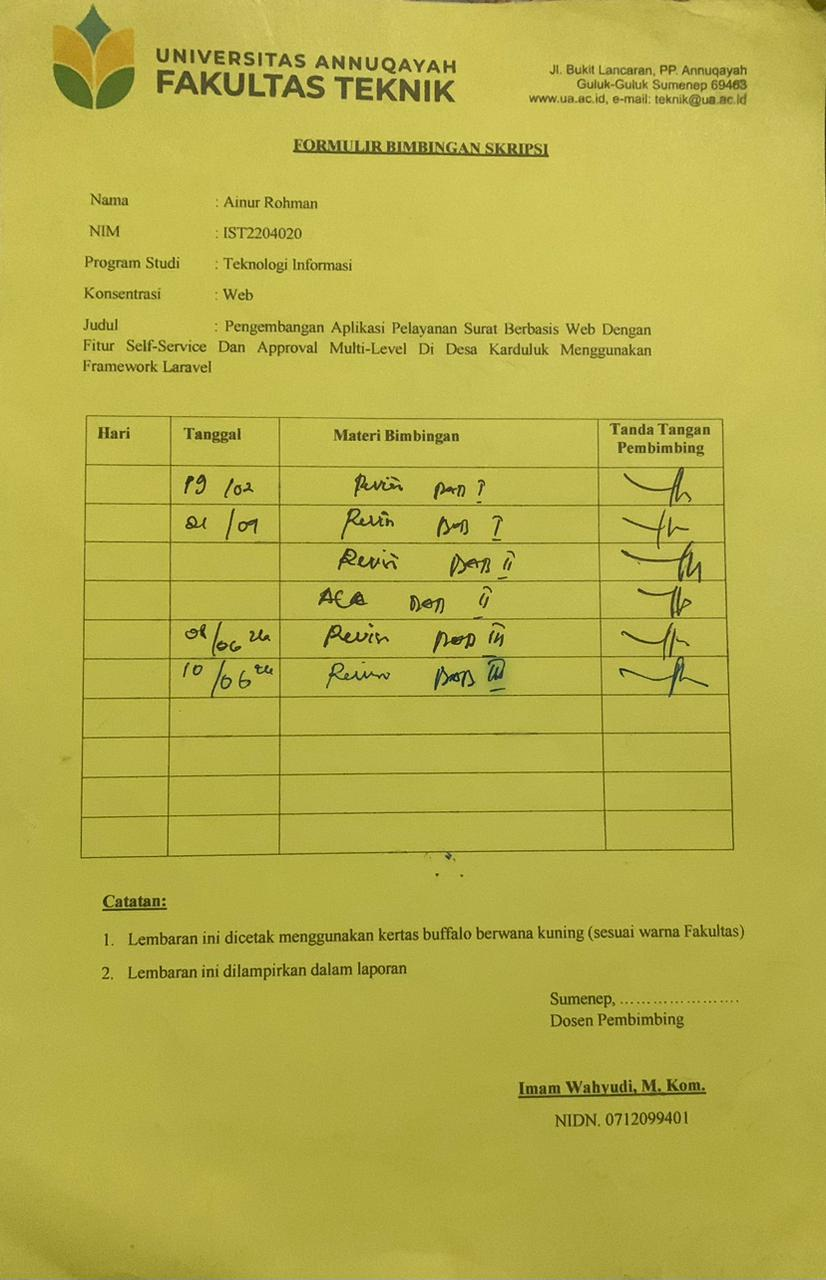 UNIVERSITAS ANNUQAYAH
FAKULTAS TEKNIK
Jl. Bukit Lancaran, PP. Annuqayah
Guluk-Guluk Sumenep 69463
www.ua.ac.id, e-mail: teknik@ua.ac.id
FORMULIR BIMBINGAN SKRIPSI
Nama : Ainur Rohman
NIM : IST2204020
Program Studi : Teknologi Informasi
Konsentrasi : Web
Judul : Pengembangan Aplikasi Pelayanan Surat Berbasis Web Dengan
Fitur Self-Service Dan Approval Multi-Level Di Desa Karduluk Menggunakan
Framework Laravel
Hari Tanggal Materi Bimbingan Tanda Tangan Pembimbing
19 /02 Revisi BAB I
/04 Revisi BAB I
Revisi BAB II
ACC BAB II
/06 Revisi BAB III
10 /06 Revisi BAB III
Catatan:
1. Lembaran ini dicetak menggunakan kertas buffalo berwana kuning (sesuai warna Fakultas)
2. Lembaran ini dilampirkan dalam laporan
Sumenep, .......................
Dosen Pembimbing
Imam Wahyudi, M. Kom.
NIDN. 0712099401